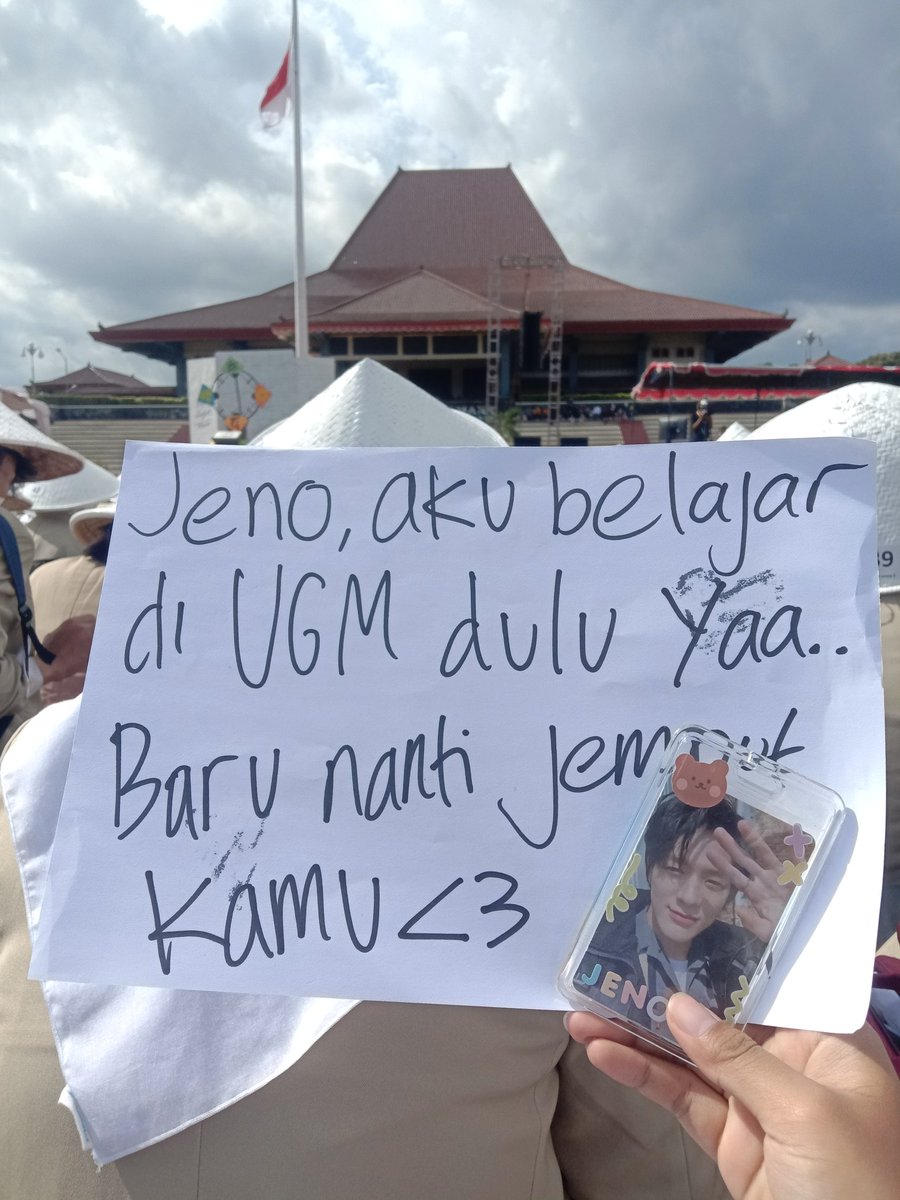 Jeno, aku belajar
di UGM dulu yaa..
Baru nanti
Kamu <3
JENO
39